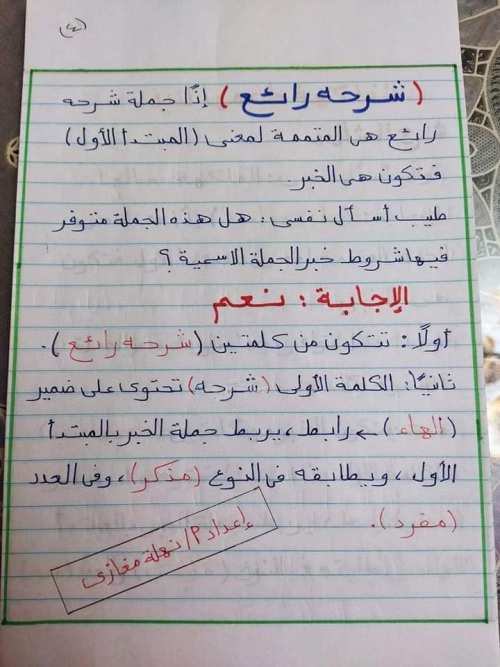 (٤)
(شرحه رائع) إذًا جملة شرحه
رائع هى المتممة لمعنى (المبتدأ الأول)
فتكون هى الخبر.
طيب أسأل نفسى: هل هذه الجملة متوفر
فيها شروط خبر الجملة الاسمية؟
الإجابة: نعم
أولًا: تتكون من كلمتين (شرحه رائع).
ثانيًا: الكلمة الأولى (شرحه) تحتوى على ضمير
(الهاء) ← رابط، يربط جملة الخبر بالمبتدأ
الأول، ويطابقه فى النوع (مذكر)، وفى العدد
(مفرد).
إعداد م/ نهلة مغازى